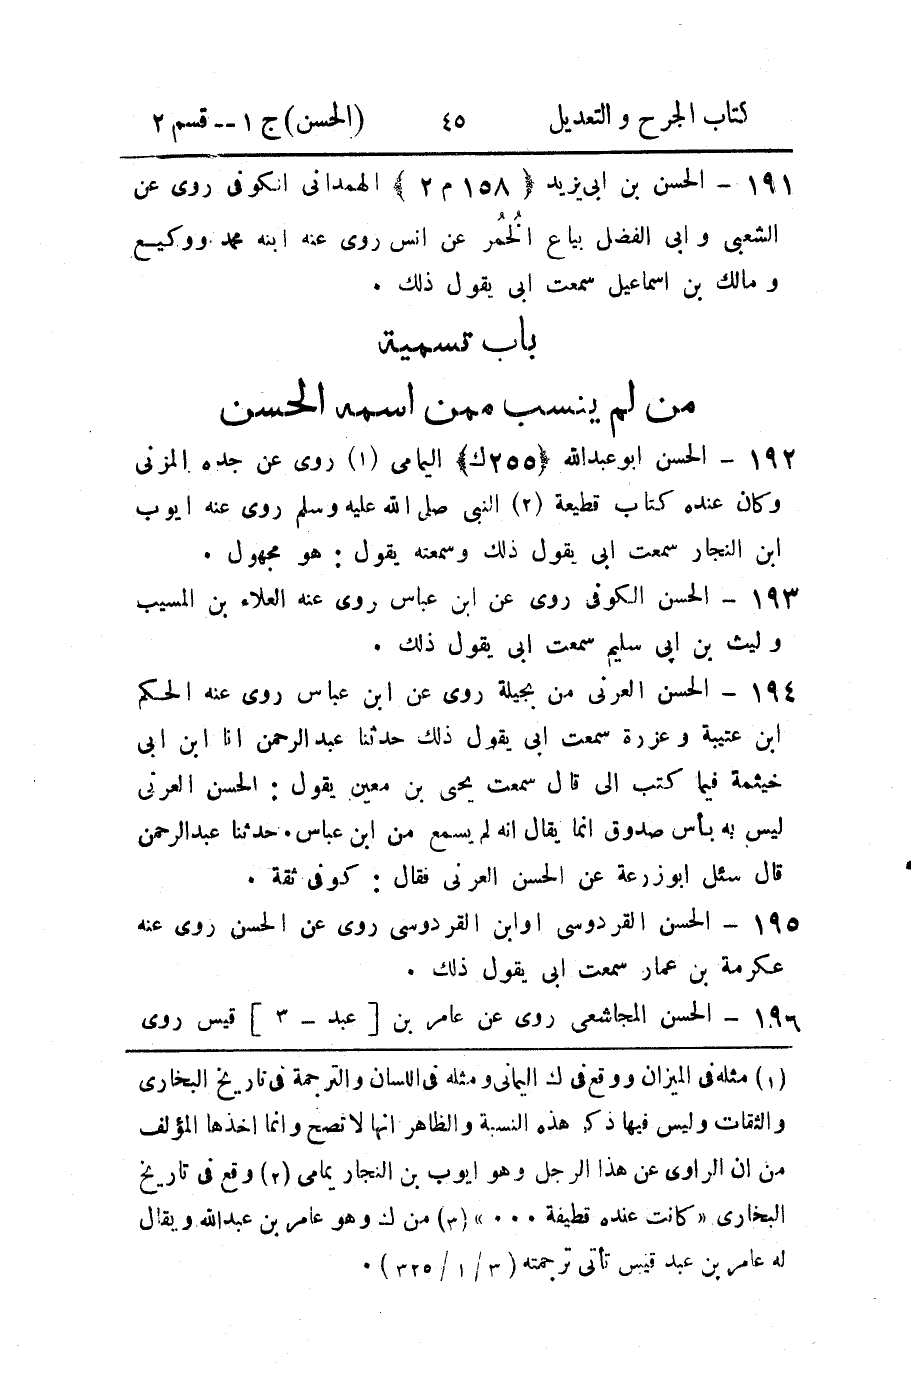 كتاب الجرح و التعديل ٤٥ (الحسن) ج ١ -- قسم ٢
١٩١ - الحسن بن ابى يزيد ﴿ ١٥٨ م ٢ ﴾ الهمدانى الكوفى روى عن
الشعبى و ابى الفضل بياع الخُمُر عن انس روى عنه ابنه محمد ووكيع
و مالك بن اسماعيل سمعت ابى يقول ذلك .
باب تسمية
من لم ينسب ممن اسمه الحسن
١٩٢ - الحسن ابو عبدالله ﴿٢٥٥ك﴾ اليمامى (١) روى عن جده المزنى
وكان عنده كتاب قطيعة (٢) النبى صلى الله عليه وسلم روى عنه ايوب
ابن النجار سمعت ابى يقول ذلك وسمعته يقول : هو مجهول .
١٩٣ - الحسن الكوفى روى عن ابن عباس روى عنه العلاء بن المسيب
و ليث بن ابى سليم سمعت ابى يقول ذلك .
١٩٤ - الحسن العرنى من بجيلة روى عن ابن عباس روى عنه الحكم
ابن عتيبة و عزرة سمعت ابى يقول ذلك حدثنا عبد الرحمن انا ابن ابى
خيثمة فيما كتب الى قال سمعت يحيى بن معين يقول : الحسن العرنى
ليس به بأس صدوق انما يقال انه لم يسمع من ابن عباس . حدثنا عبدالرحمن
قال سئل ابو زرعة عن الحسن العرنى فقال : كوفى ثقة .
١٩٥ - الحسن القردوسى او ابن القردوسى روى عن الحسن روى عنه
عكرمة بن عمار سمعت ابى يقول ذلك .
١٩٦ - الحسن المجاشعى روى عن عامر بن [ عبد - ٣ ] قيس روى
(١) مثله فى الميزان ووقع فى ك اليمانى ومثله فى اللسان والترجمة فى تاريخ البخارى
والثقات وليس فيها ذكر هذه النسبة والظاهر انها لا تصح وانما اخذها المؤلف
من ان الراوى عن هذا الرجل وهو ايوب بن النجار يمامى (٢) وقع فى تاريخ
البخارى «كانت عنده قطيفة ٠٠٠» (٣) من ك وهو عامر بن عبدالله ويقال
له عامر بن عبد قيس تأتى ترجمته (٣ / ١ / ٣٢٥) .